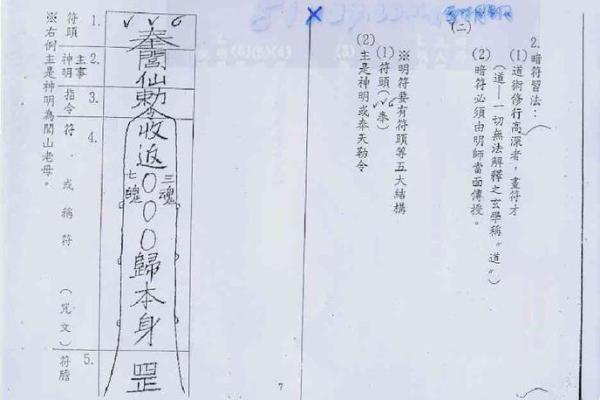 2. 暗符習法：
(1) 道術修行高深者，畫符才
（道—一切無法解釋之玄學稱〝道〞）
(2) 暗符必須由明師當面傳授。
(二)
※明符要有符頭等五大結構
(1) 符頭（✓✓奉）
(2) 主是神明或奉矢勒令
7
奉閭仙勅令收返○○○歸本身
三魂
七魄
罡
1. 符頭
2. 主事神明
3. 指令
4. 符或稱符（咒文）
5. 符膽
※右例主是神明為閭山老母。